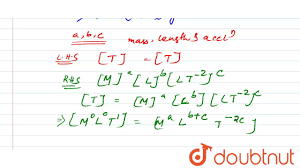 a, b, c mass, length & accl?
L.H.S [T] = [T]
R.H.S [M]ᵃ [L]ᵇ [LT⁻²]ᶜ
[T] = [M]ᵃ [Lᵇ] [LT⁻²]ᶜ
⇒ [M⁰L⁰T¹] = [Mᵃ Lᵇ⁺ᶜ T⁻²ᶜ]
doubtnut